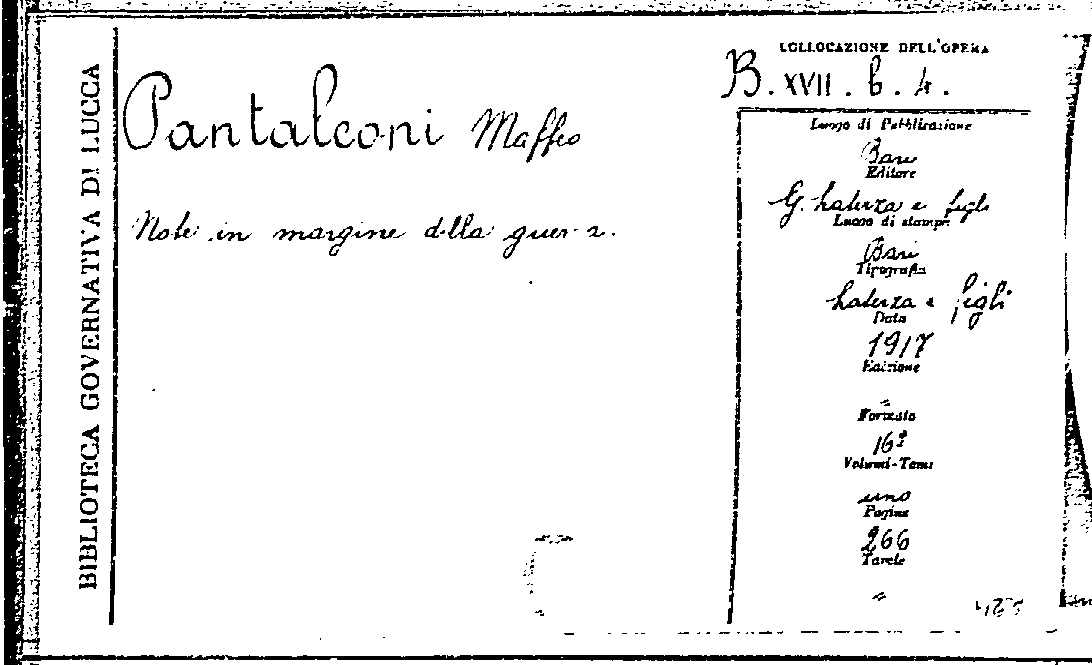 BIBLIOTECA GOVERNATIVA DI LUCCA
Pantaleoni Maffeo
Note in margine della guerra.
COLLOCAZIONE DELL'OPERA
B. XVII. 6. 4.
Luogo di Pubblicazione
Bari
Editore
G. Laterza e figli
Luogo di stampa
Bari
Tipografia
Laterza e figli
Data
1917
Edizione
"
Formato
16º
Volumi-Tomi
uno
Pagine
266
Tavole
"